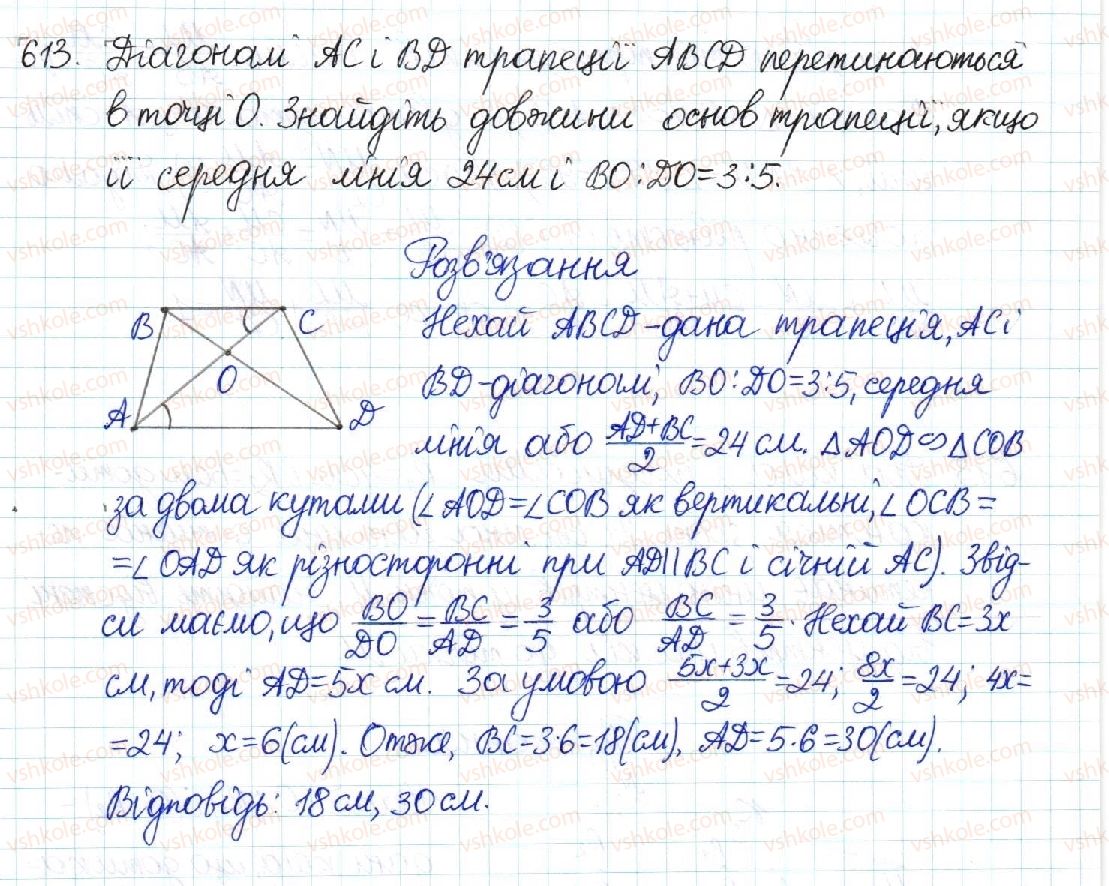 613. Діагоналі AC і BD трапеції ABCD перетинаються
в точці O. Знайдіть довжини основ трапеції, якщо
її середня лінія 24 см і BO:DO=3:5.
Розв'язання
B C
O
A D
Нехай ABCD-дана трапеція, AC і
BD-діагоналі, BO:DO=3:5, середня
лінія або (AD+BC)/2=24 см. △AOD∽△COB
за двома кутами (∠AOD=∠COB як вертикальні, ∠OCB=
=∠OAD як різносторонні при AD||BC і січній AC). Звід-
си маємо, що BO/DO=BC/AD=3/5 або BC/AD=3/5. Нехай BC=3x
см, тоді AD=5x см. За умовою (5x+3x)/2=24; 8x/2=24; 4x=
=24; x=6(см). Отже, BC=3·6=18(см), AD=5·6=30(см).
Відповідь: 18 см, 30 см.